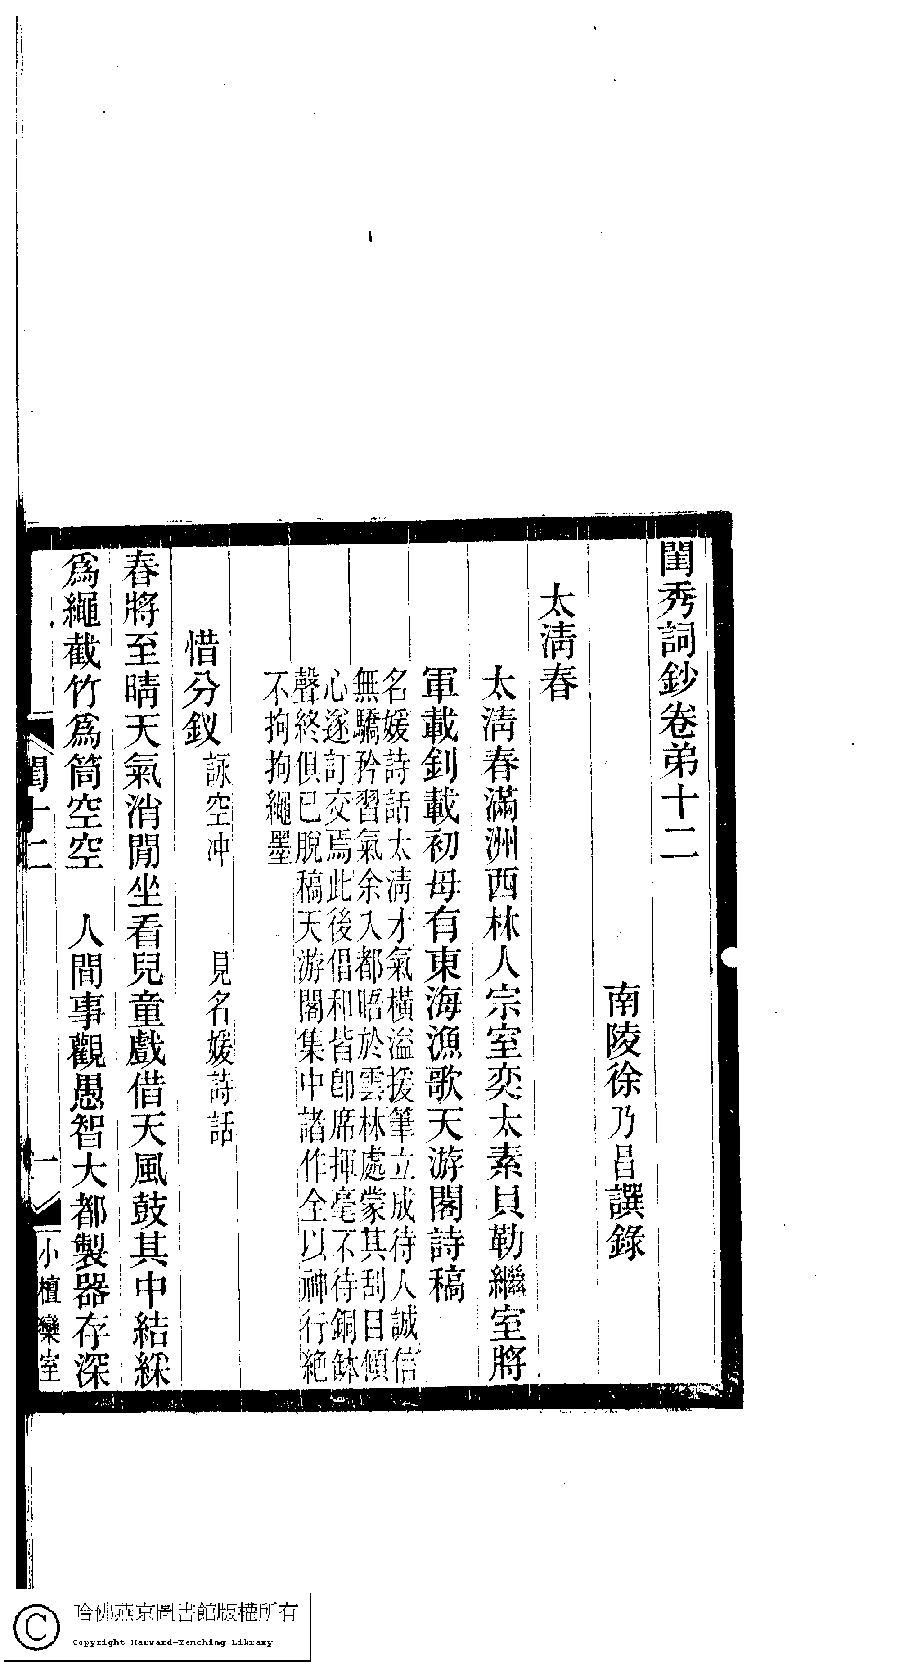 閨秀詞鈔卷弟十二
南陵徐乃昌譔錄
太淸春
太淸春滿洲西林人宗室奕太素貝勒繼室將
軍載釗載初母有東海漁歌天游閣詩稿
名媛詩話太淸才氣橫溢援筆立成待人誠信
無驕矜習氣余入都晤於雲林處蒙其刮目傾
心遂訂交焉此後倡和皆卽席揮毫不待銅鉢
聲終俱已脫稿天游閣集中諸作全以神行絕
不拘拘繩墨
惜分釵 詠空冲 見名媛詩話
春將至晴天氣消閒坐看兒童戲借天風鼓其中結綵
爲繩截竹爲筒空空 人間事觀愚智大都製器存深
閨十二 一 小檀欒室
哈佛燕京圖書館版權所有
Copyright Harvard-Yenching Library